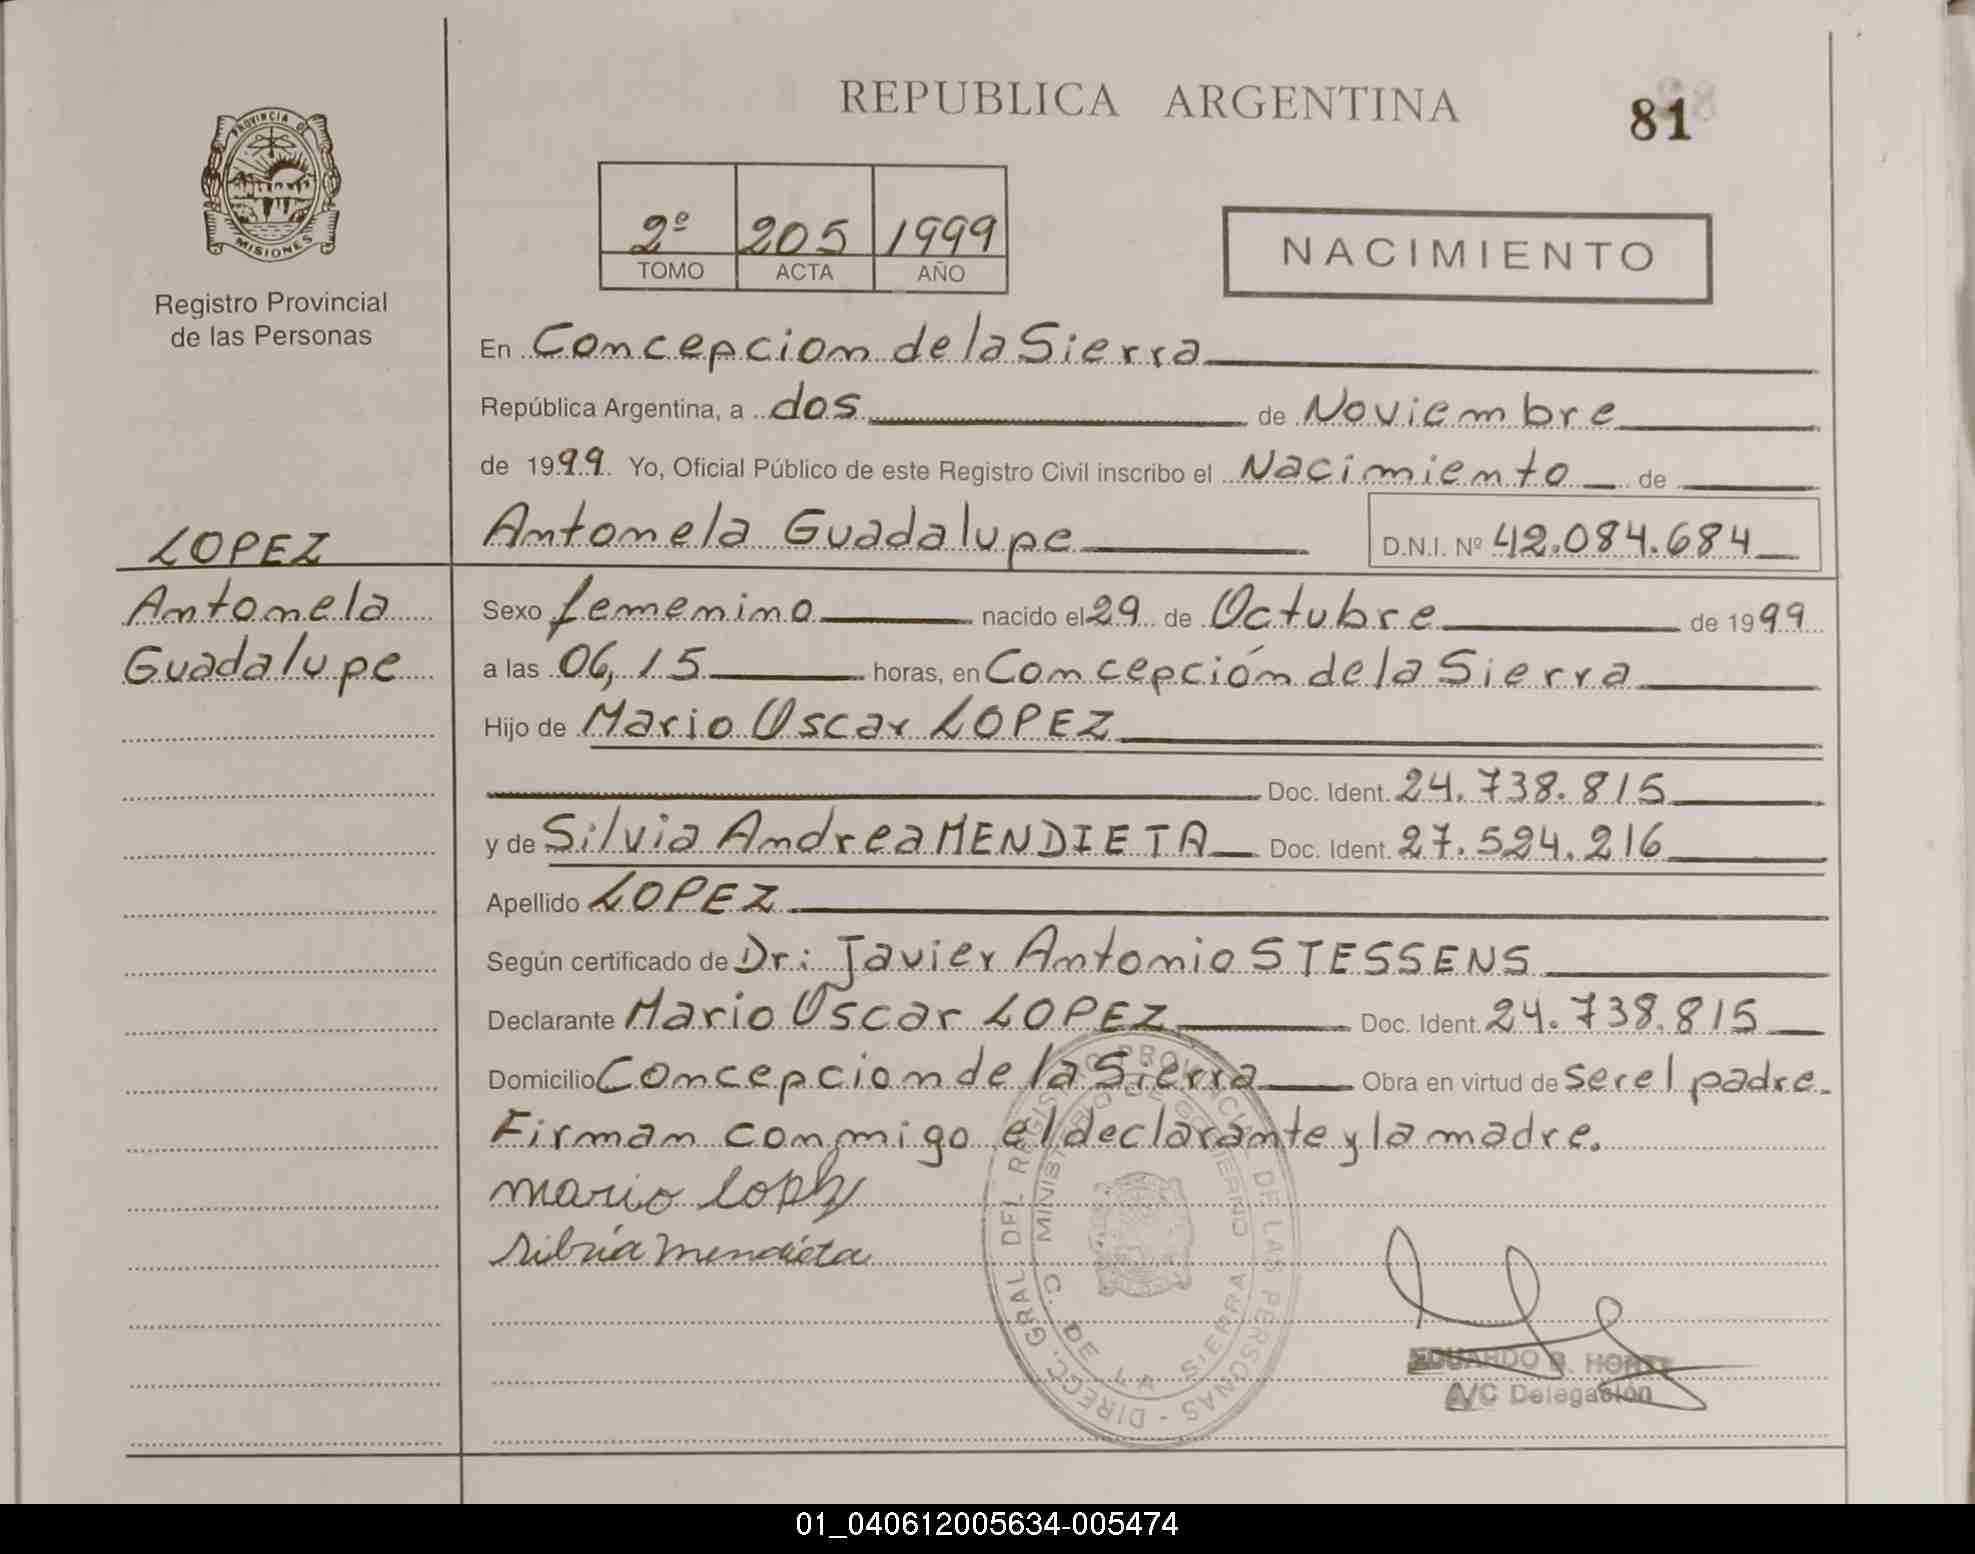 REPUBLICA ARGENTINA
81
PROVINCIA DE
MISIONES
Registro Provincial
de las Personas
2º 205 1999
TOMO ACTA AÑO
NACIMIENTO
En Concepcion de la Sierra
República Argentina, a dos de Noviembre
de 1999. Yo, Oficial Público de este Registro Civil inscribo el Nacimiento de
Antonela Guadalupe D.N.I. Nº 42.084.684
LOPEZ
Antonela
Guadalupe
Sexo femenino nacido el 29 de Octubre de 1999
a las 06,15 horas, en Concepción de la Sierra
Hijo de Mario Oscar LOPEZ
Doc. Ident. 24.738.815
y de Silvia Andrea MENDIETA Doc. Ident. 27.524.216
Apellido LOPEZ
Según certificado de Dr: Javier Antonio STESSENS
Declarante Mario Oscar LOPEZ Doc. Ident. 24.738.815
Domicilio Concepcion de la Sierra Obra en virtud de ser el padre.
Firman conmigo el declarante y la madre.
mario lopez
silvia mendieta
DIRECC. GRAL. DEL REGISTRO PROVINCIAL DE LAS PERSONAS -
MINISTERIO DE GOBIERNO
C. DE LA SIERRA
EDUARDO B.
A/C Delegación
01_040612005634-005474